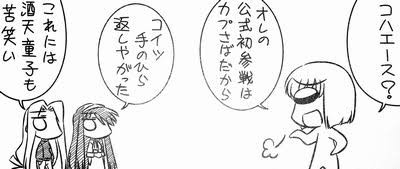 コハエース?
オレの
公式初参戦は
カプさばだから
コイツ
手のひら
返しやがった
これには
酒天童子も
苦笑い